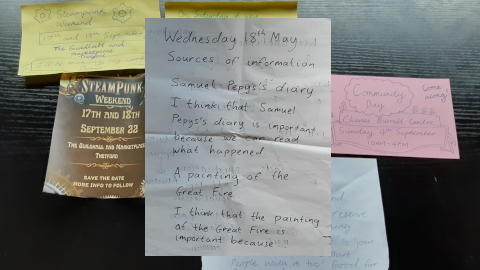 Steampunk
Weekend
17th and 18th Sept
The Guildhall and
marketplace
STEAMPUNK
WEEKEND
17TH AND 18TH
SEPTEMBER 22
THE GUILDHALL AND MARKETPLACE
THETFORD
SAVE THE DATE
MORE INFO TO FOLLOW
Wednesday 18th May
Sources of information
Samuel Pepys's diary
I think that Samuel
Pepys's diary is important
because we can read
what happened
A painting of the
Great Fire
I think that the painting
of the Great Fire is
important because
Community
Day
Come
along!
Charles Burrell Centre
Sunday 4th September
10am-4pm